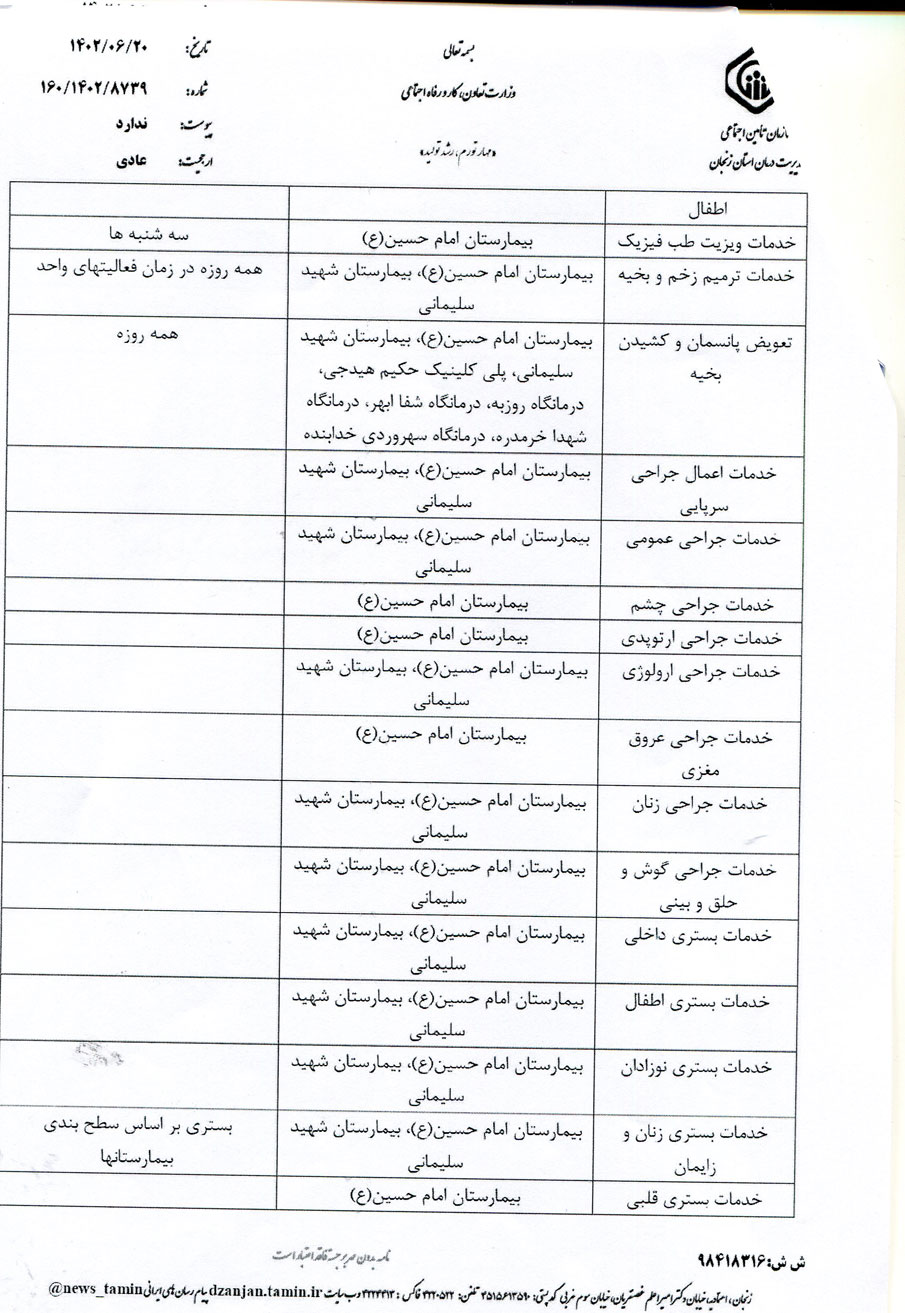 بسمه تعالی
وزارت تعاون، کار و رفاه اجتماعی
«مهار تورم، رشد تولید»
سازمان تامین اجتماعی
مدیریت درمان استان زنجان
تاریخ: ۱۴۰۲/۰۶/۲۰
شماره: ۱۶۰/۱۴۰۲/۸۷۳۹
پیوست: ندارد
ارجحیت: عادی
اطفال
خدمات ویزیت طب فیزیک
بیمارستان امام حسین(ع)
سه شنبه ها
خدمات ترمیم زخم و بخیه
بیمارستان امام حسین(ع)، بیمارستان شهید
سلیمانی
همه روزه در زمان فعالیتهای واحد
تعویض پانسمان و کشیدن
بخیه
بیمارستان امام حسین(ع)، بیمارستان شهید
سلیمانی، پلی کلینیک حکیم هیدجی،
درمانگاه روزبه، درمانگاه شفا ابهر، درمانگاه
شهدا خرمدره، درمانگاه سهروردی خدابنده
همه روزه
خدمات اعمال جراحی
سرپایی
بیمارستان امام حسین(ع)، بیمارستان شهید
سلیمانی
خدمات جراحی عمومی
بیمارستان امام حسین(ع)، بیمارستان شهید
سلیمانی
خدمات جراحی چشم
بیمارستان امام حسین(ع)
خدمات جراحی ارتوپدی
بیمارستان امام حسین(ع)
خدمات جراحی ارولوژی
بیمارستان امام حسین(ع)، بیمارستان شهید
سلیمانی
خدمات جراحی عروق
مغزی
بیمارستان امام حسین(ع)
خدمات جراحی زنان
بیمارستان امام حسین(ع)، بیمارستان شهید
سلیمانی
خدمات جراحی گوش و
حلق و بینی
بیمارستان امام حسین(ع)، بیمارستان شهید
سلیمانی
خدمات بستری داخلی
بیمارستان امام حسین(ع)، بیمارستان شهید
سلیمانی
خدمات بستری اطفال
بیمارستان امام حسین(ع)، بیمارستان شهید
سلیمانی
خدمات بستری نوزادان
بیمارستان امام حسین(ع)، بیمارستان شهید
سلیمانی
خدمات بستری زنان و
زایمان
بیمارستان امام حسین(ع)، بیمارستان شهید
سلیمانی
بستری بر اساس سطح بندی
بیمارستانها
خدمات بستری قلبی
بیمارستان امام حسین(ع)
ش ش: ۹۸۴۱۸۳۱۶
نامه بدون مهر برجسته فاقد اعتبار است
زنجان، اعتمادیه، خیابان دکتر امیر اعلم غضنفریان، خیابان سوم غربی کد پستی: ۴۵۱۵۶۱۳۵۹۰ تلفن: ۳۲۲۰۵۲۲ فاکس: ۴۲۲۴۴۱۳ وب سایت dzanjan.tamin.ir پیام رسان های ایرانی @news_tamin